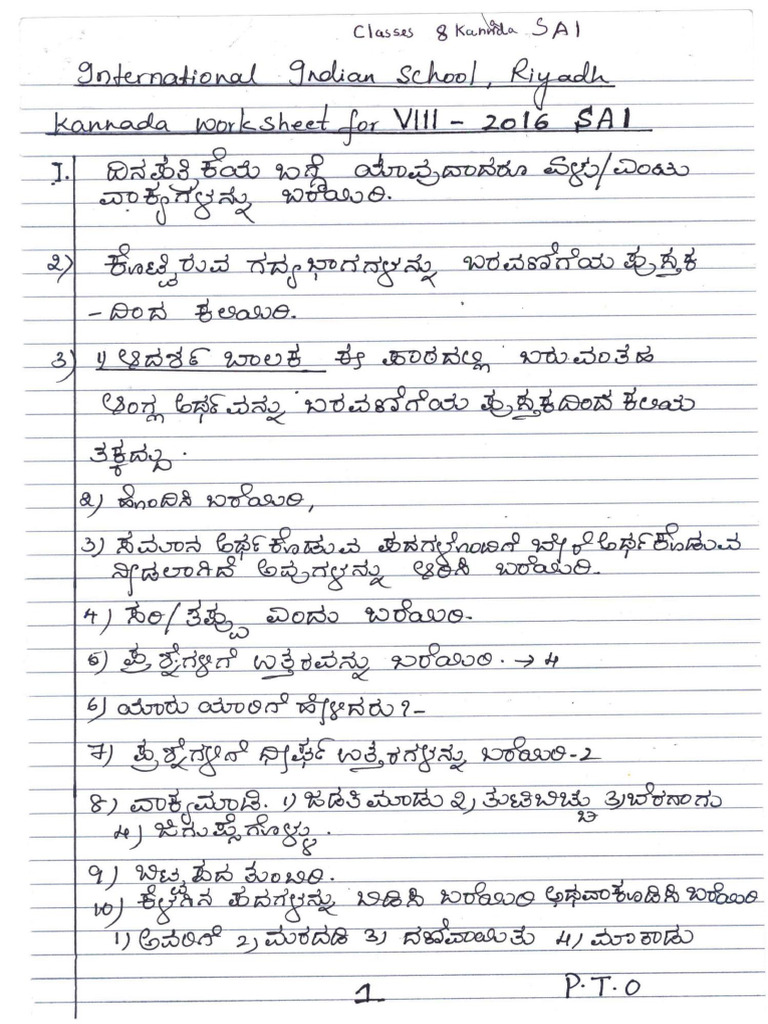 Classes 8 Kannada SAI
International Indian School, Riyadh
Kannada worksheet for VIII - 2016 SAI
I. ದಿನಪತ್ರಿಕೆಯ ಬಗ್ಗೆ ಯಾವುದಾದರೂ ಏಳು/ಎಂಟು
ವಾಕ್ಯಗಳನ್ನು ಬರೆಯಿರಿ.
೨) ಕೊಟ್ಟಿರುವ ಗದ್ಯಭಾಗಗಳನ್ನು ಬರವಣಿಗೆಯ ಪುಸ್ತಕ
-ದಿಂದ ಕಲಿಯಿರಿ.
3) 1) ಆದರ್ಶ ಬಾಲಕ ಈ ಪಾಠದಲ್ಲಿ ಬರುವಂತಹ
ಆಂಗ್ಲ ಅರ್ಥವನ್ನು ಬರವಣಿಗೆಯ ಪುಸ್ತಕದಿಂದ ಕಲಿಯ
ತಕ್ಕದ್ದು.
೨) ಹೊಂದಿಸಿ ಬರೆಯಿರಿ,
3) ಸಮಾನ ಅರ್ಥಕೊಡುವ ಪದಗಳೊಂದಿಗೆ ಬೇರೆ ಅರ್ಥಕೊಡುವ
ನೀಡಲಾಗಿದೆ ಅವುಗಳನ್ನು ಆರಿಸಿ ಬರೆಯಿರಿ.
4) ಸರಿ/ತಪ್ಪು ಎಂದು ಬರೆಯಿರಿ.
5) ಪ್ರಶ್ನೆಗಳಿಗೆ ಉತ್ತರವನ್ನು ಬರೆಯಿರಿ. → 4
6) ಯಾರು ಯಾರಿಗೆ ಹೇಳಿದರು?-
7) ಪ್ರಶ್ನೆಗಳಿಗೆ ದೀರ್ಘ ಉತ್ತರಗಳನ್ನು ಬರೆಯಿರಿ-2
8) ವಾಕ್ಯಮಾಡಿ. 1) ಜಡತಿಮಾಡು ೨) ತುಟಿಬಿಚ್ಚು 3) ಬೆರಗಾಗು
4) ಜಿಗುಪ್ಸೆಗೊಳ್ಳು.
9) ಬಿಟ್ಟ ಪದ ತುಂಬಿರಿ.
10) ಕೆಳಗಿನ ಪದಗಳನ್ನು ಬಿಡಿಸಿ ಬರೆಯಿರಿ ಅಥವಾ ಕೂಡಿಸಿ ಬರೆಯಿರಿ
1) ಅವರಿಗೆ 2) ಮರದಡಿ 3) ದಣಿವಾಯಿತು 4) ಮಾರಾಡು
1 P.T.O